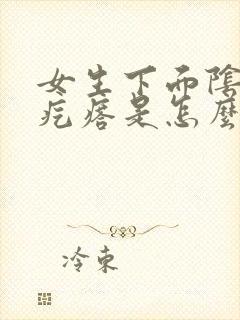 女生下面陰
疙瘩是怎麼
冷東